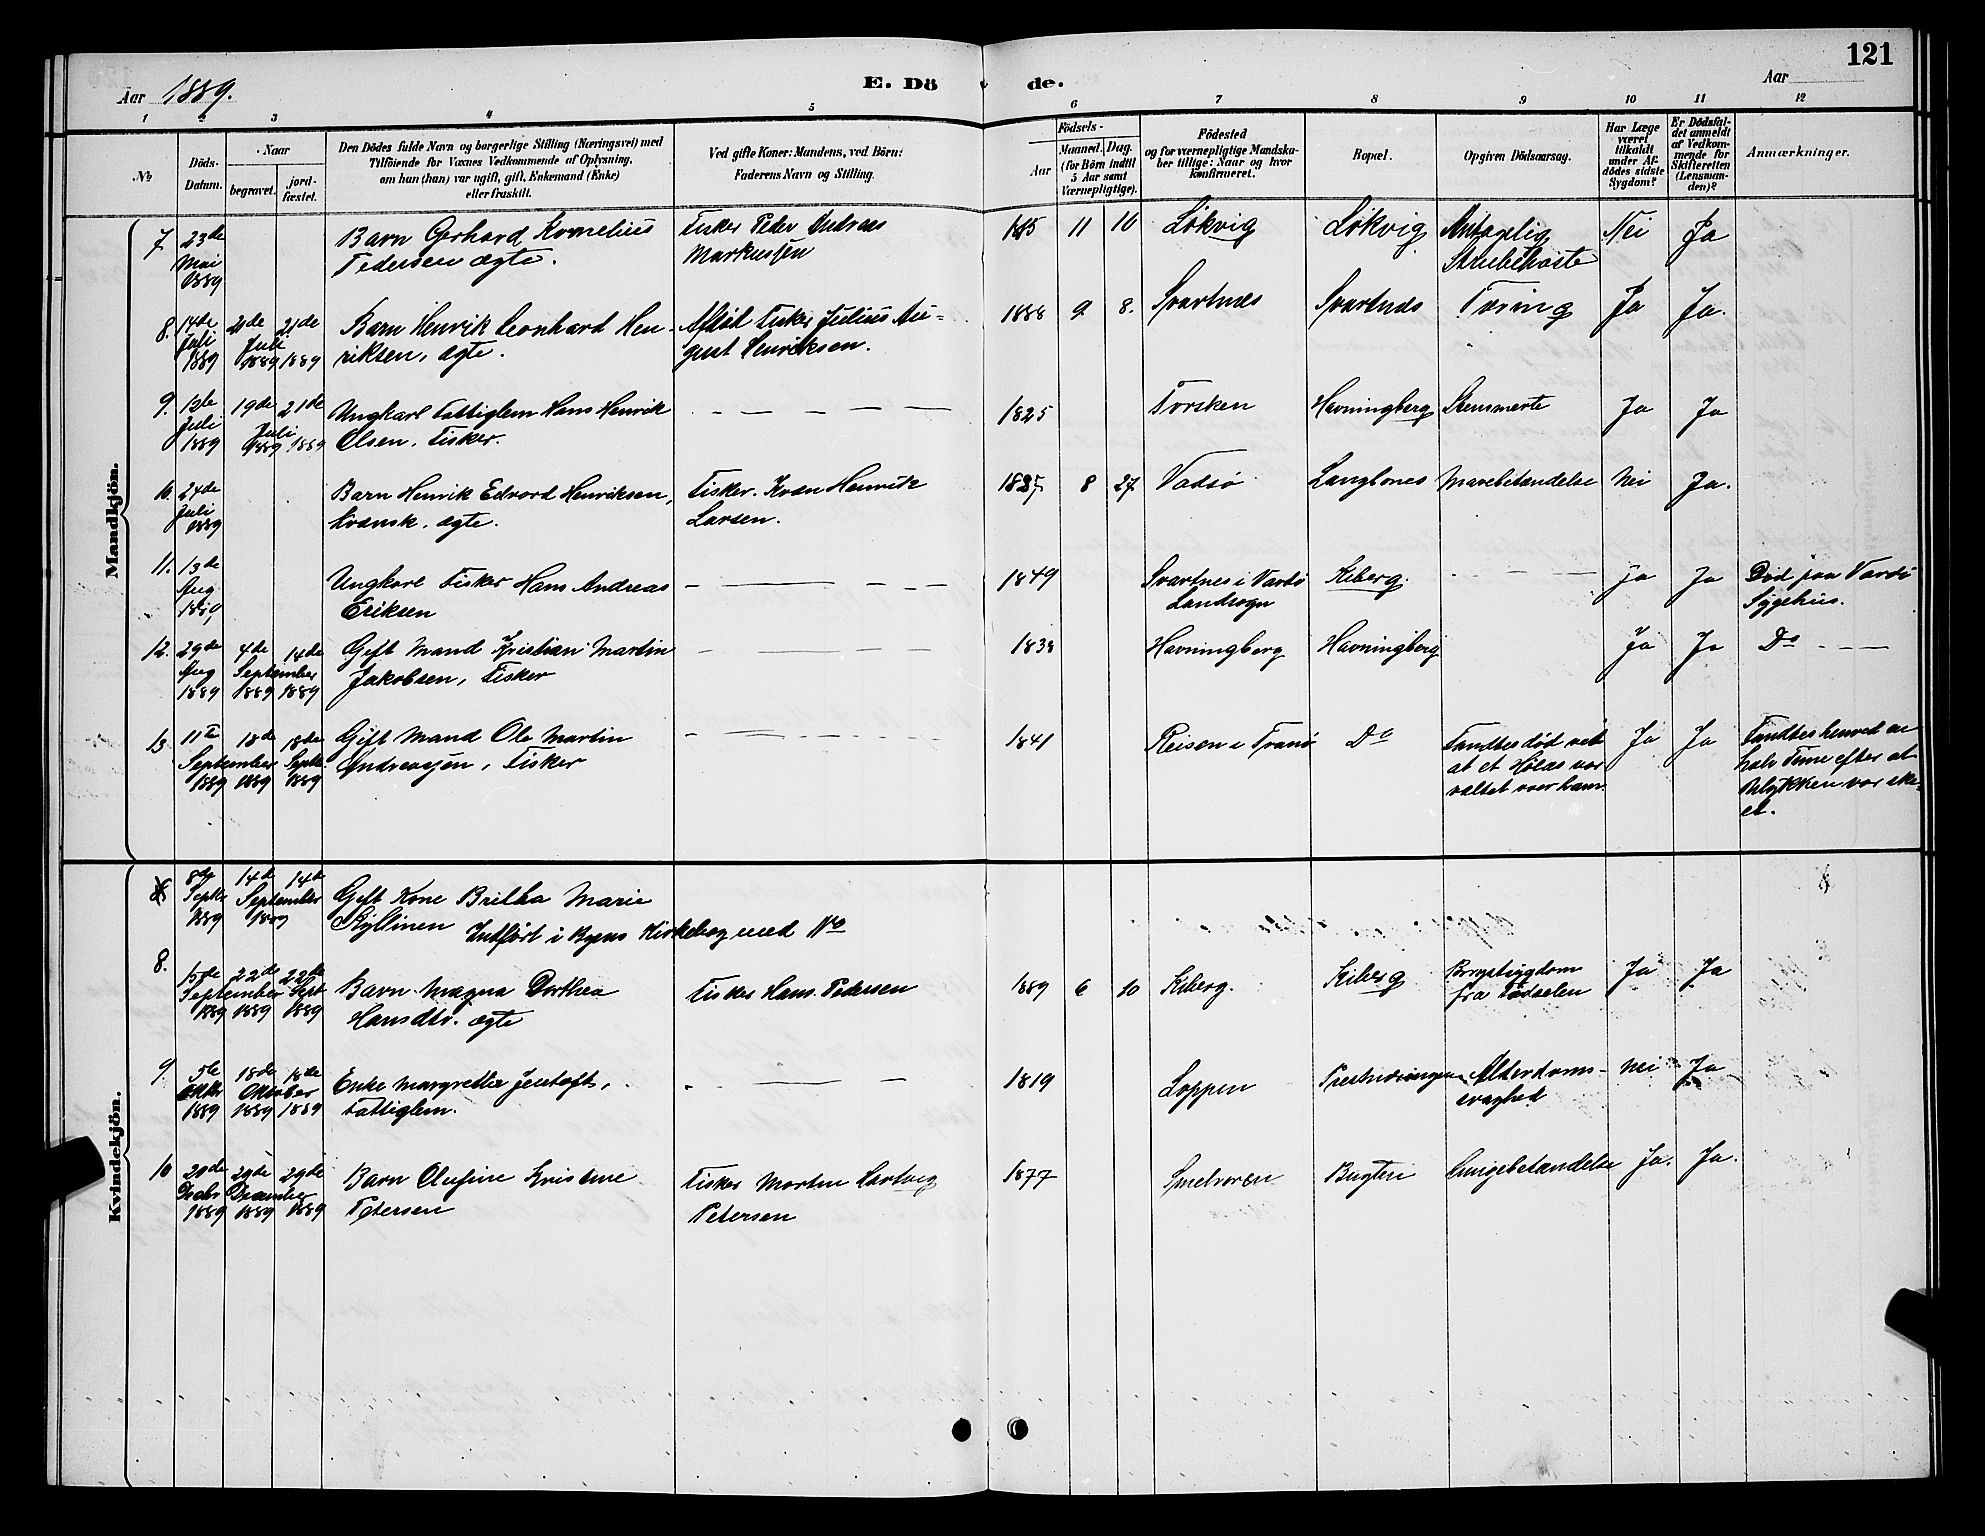 121
Aar 1889.
E. Dö de.
Aar
1 2 3 4 5 6 7 8 9 10 11 12
No
Döds-
Datum.
Naar
begravet.
jord-
fæstet.
Den Dödes fulde Navn og borgerlige Stilling (Næringsvei) med
Tilföiende for Voxnes Vedkommende af Oplysning,
om hun (han) var ugift, gift, Enkemand (Enke)
eller fraskilt.
Ved gifte Koner: Mandens, ved Börn:
Faderens Navn og Stilling.
Födsels-
Aar
Maaned. Dag.
(for Börn indtil
5 Aar samt
Værnepligtige).
Födested
og for værnepligtige Mandska-
ber tillige: Naar og hvor
konfirmeret.
Bopæl.
Opgiven Dödsaarsag.
Har Læge
været
tilkaldt
under Af-
dödes sidste
Sygdom?
Er Dödsfal-
det anmeldt
af Vedkom-
mende for
Skifteretten
(Lensman-
den)?
Anmærkninger.
Mandkjön.
7. 23de Mai 1889
Barn Gerhard Kornelius
Pedersen ægte.
Fisker Peder Andreas
Markussen
11 10 Løkvig Løkvig Antagelig
Strubehoste
Nei Ja
8. 14de Juli 1889 21de Juli 1889 21de 1889
Barn Henrik Leonhard Hen-
riksen, ægte.
Afdød Fisker Julius Au-
gust Henriksen.
1888 9 8. Svartnes Svartnes Tæring Ja Ja.
9. 12te Juli 1889 19de Juli 1889 21de 1889
Ungkarl Fattiglem Hans Henrik
Olsen, Fisker.
1825 Torsken Havningberg Ja Ja
10. 24de Juli 1889
Barn Henrik Edvard Henriksen,
kvænsk, ægte.
Fisker. Kvæn Henrik
Larsen.
8 27. Vadsø Langbones Mavebetændelse Nei Ja.
11. 13de Aug
Ungkarl Fisker Hans Andreas
Eriksen
1849 Svartnes i Vardø
Landsogn
Kiberg. Ja Ja Død paa Vardø
Sygehus.
12. 29de Aug 1889 4de September 1889 14de 1889
Gift Mand Kristian Martin
Jakobsen, Fisker
1838 Havningberg Havningberg Ja Ja Do
13. 11te September 1889 18de 1889 18de Septr 1889
Gift Mand Ole Martin
Andreassen, Fisker
1841 Reisen i Tranø Do Fandtes død ved
at et Hølæs var
væltet over ham.
Ja Ja Fandtes henved en
halv Time efter at
Ulykken var ske-
et.
Kvindekjön.
8de Septbr 1889 14de September 1889 14de
Gift Kone Britha Marie
Kyllinen Indført i Byens Kirkebog med No
8. 15de September 1889 22de 1889 22de Sept 1889
Barn Magna Dorthea
Hansdtr. ægte
Fisker Hans Pedersen
1889 6 10 Kiberg. Kiberg Brystsygdom
fra Fødselen
Ja Ja
9 5te Oktbr 1889 18de Oktober 1889 18de 1889
Enke Margrethe Jentoft,
Fattiglem.
1819 Loppen Alderdoms-
svaghed
Nei Ja
10 20de Decbr 1889 29de December 1889 29de 1889
Barn Olufine Kristine
Petersen
Fisker Morten Hartvig
Petersen
1877 Smelroren Bugten Lungebetændelse Ja. Ja.